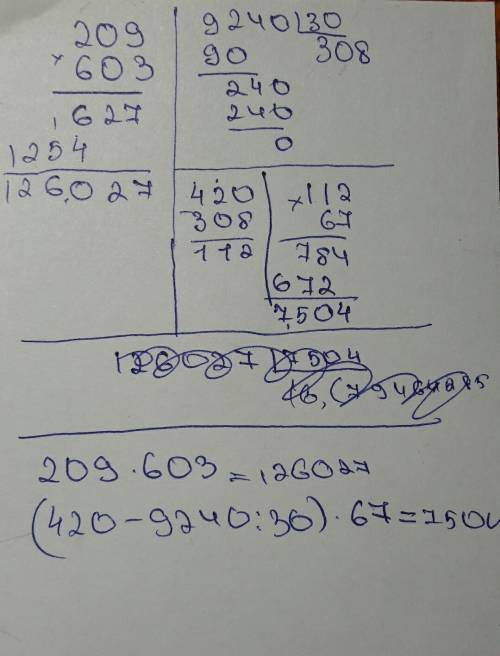 209
× 603
627
1254
126027
9240 30
90 308
240
240
0
420
308
112
× 112
67
784
672
7504
126027 7504
209 · 603 = 126027
(420 - 9240 : 30) · 67 = 7504